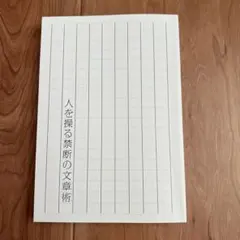 人を操る禁断の文章術